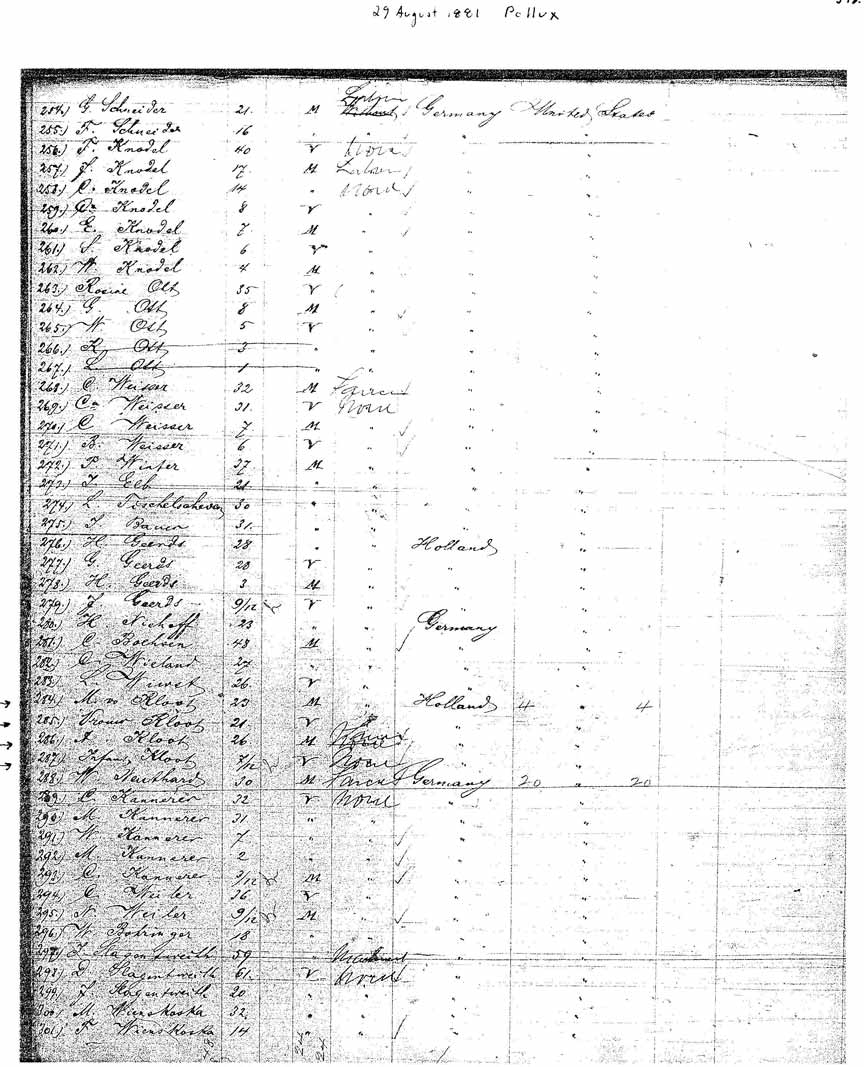 29 August 1881 Pollux
254.) G. Schneider 21. M Germany United States
255.) F. Schneider 16 " " "
256.) F. Knodel 40 V None " "
257.) J. Knodel 17. M " "
258.) C. Knodel 14 " None " "
259.) Knodel 8 V " " "
260.) E. Knodel 7. M " " "
261.) S. Knodel 6 V " " "
262.) W. Knodel 4 M " " "
263.) Rosine Ott 35 V " " "
264.) G. Ott 8 M " " "
265.) W. Ott 5 V " " "
266.) K. Ott 3 " " " "
267.) L. Ott 1 " " " "
268.) C. Weisser 32 M " "
269.) Weisser 31. V None " "
270.) C. Weisser 7 M " " "
271.) B. Weisser 6 V " " "
272.) P. Winter 37 M " " "
273.) Elb 21 " " " "
274.) L. 30 " " " "
275.) Bauer 31. " " " "
276.) H. Geerds 28 " " Holland "
277.) G. Geerds 28 V " " "
278.) H. Geerds 3 M " " "
279.) J. Geerds 9/12 V " " "
280.) H. Niehoff 23 " " Germany "
281.) C. Bochsen 48 M " " "
282.) C. Wieland 27 " " " "
283.) L. Wurst 26. V " " "
284.) M. v. Kloot 23 M " Holland 4 " 4
285.) Vrouw Kloot 21 V " " "
286.) A. Kloot 26 M " "
287.) Infant Kloot 7/12 V None " "
288.) W. Neuthard 30 M Germany 20 " 20
289.) C. Kannerer 32 V None " "
290.) M. Kannerer 31 " " " "
291.) W. Kannerer 7 " " " "
292.) M. Kannerer 2 " " " "
293.) C. Kannerer 3/12 M " " "
294.) C. Weiler 36 V " " "
295.) N. Weiler 9/12 M " " "
296.) W. Bohringer 18 " " " "
297.) 59 " " "
298.) D. 61. V None " "
299.) J. 20 " " " "
300.) M. Wienskoska 32. " " " "
301.) F. Wienskoska 14 " " " "
24 24